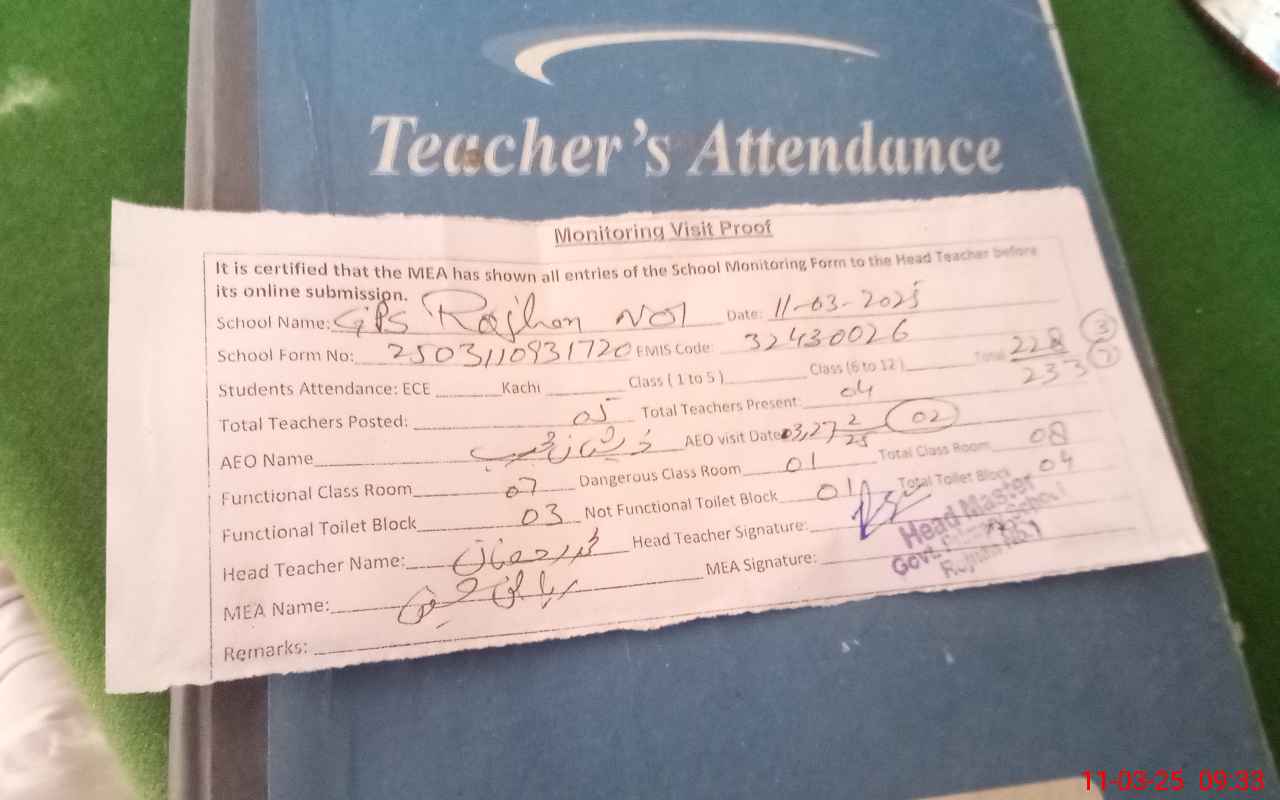 Teacher's Attendance
Monitoring Visit Proof
It is certified that the MEA has shown all entries of the School Monitoring Form to the Head Teacher before
its online submission.
School Name: GPS Rojhan NO1 Date: 11-03-2025
School Form No: 2503110931720 EMIS Code: 32430026
Students Attendance: ECE Kachi Class (1 to 5) Class (6 to 12) Total 228 3
233 7
Total Teachers Posted: 05 Total Teachers Present: 04
AEO Name AEO visit Date 03,27 2/25 02
Functional Class Room 07 Dangerous Class Room 01 Total Class Room 08
Functional Toilet Block 03 Not Functional Toilet Block 01 Total Toilet Block 04
Head Teacher Name: Head Teacher Signature:
MEA Name: MEA Signature:
Remarks:
Head Master
Govt. School
Rojhan No.1
11-03-25 09:33